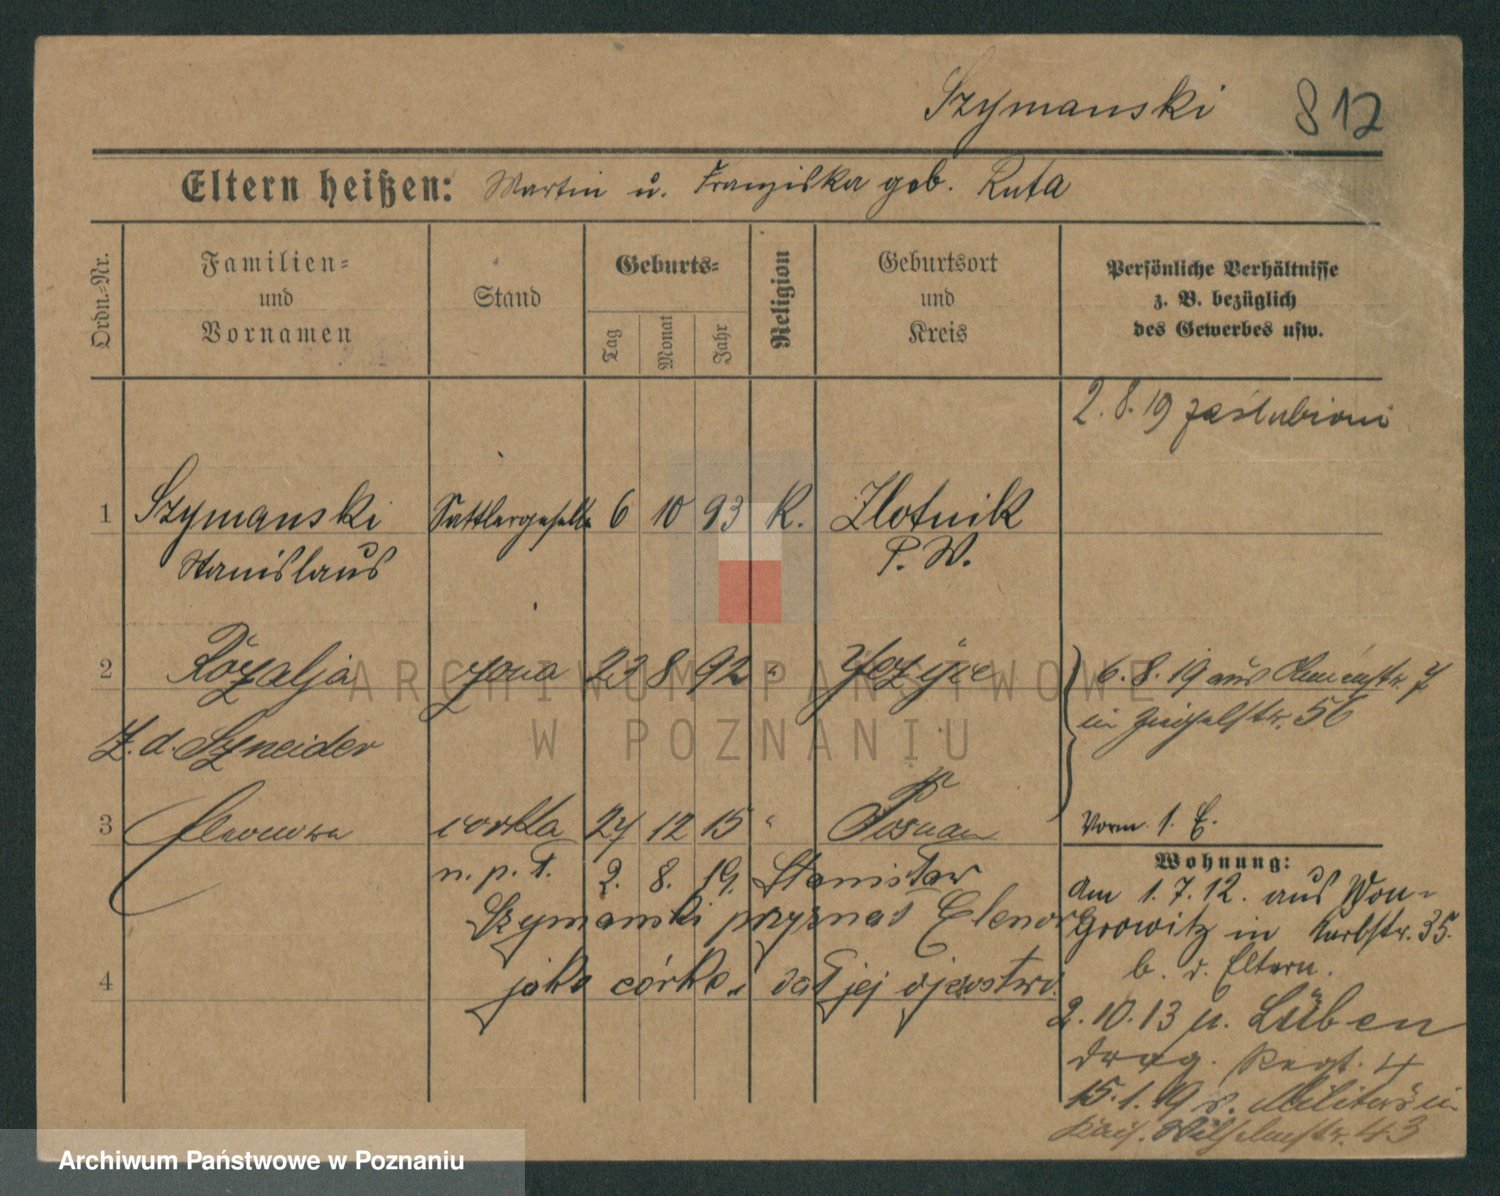 Szymanski 812
Eltern heißen: Martin u. Franziska geb. Ruta
Ordn.-Nr.
Familien-
und
Vornamen
Stand
Geburts-
Tag
Monat
Jahr
Religion
Geburtsort
und
Kreis
Persönliche Verhältnisse
z. B. bezüglich
des Gewerbes usw.
2. 8. 19 zaślubieni
1 Szymanski Sattlergeselle 6 10 93 K. Zlotnik
Stanislaus P. W.
2 Rozalja żona 23 8 92 " 6. 8. 19 aus 7
in 56
Z. d. Szneider
3 Eleonora córka 27 12 15 " Posnan
Vorm. 1. E.
n. p. t. 2. 8. 19. Stanisław
Szymanski przyznał Elenorę
4 jako córkę i dał jej ojcowstwo.
Wohnung:
Am 1. 7. 12. aus Won-
growitz in 35.
b. d. Eltern.
2. 10. 13 n. Lüben
Drag. Regt. 4
15. 1. 19 v. Militär in
Kais. Wilhelmstr. 43
ARCHIWUM PAŃSTWOWE
W POZNANIU
Archiwum Państwowe w Poznaniu